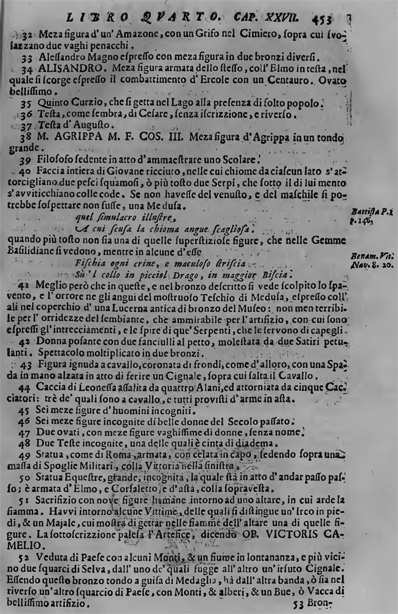 LIBRO QVARTO. CAP. XXVII. 453
32 Meza figura d'un' Amazone, con un Grifo nel Cimiero, sopra cui svo-
lazzano due vaghi penacchi.
33 Alessandro Magno espresso con meza figura in due bronzi diversi.
34 ALISANDRO. Meza figura armata dello stesso, coll' Elmo in testa, nel
quale si scorge espresso il combattimento d'Ercole con un Centauro. Ovato
bellissimo.
35 Quinto Curzio, che si getta nel Lago alla presenza di folto popolo.
36 Testa, come sembra, di Cesare, senza iscrizione, e riverso.
37 Testa d'Augusto.
38 M. AGRIPPA M. F. COS. III. Meza figura d'Agrippa in un tondo
grande.
39 Filosofo sedente in atto d'ammaestrare uno Scolare.
40 Faccia intiera di Giovane ricciuto, nelle cui chiome da ciascun lato s'at-
torcigliano due pesci squamosi, ò più tosto due Serpi, che sotto il di lui mento
s'aviticchiano colle code. Se non havesse del venusto, e del maschile si po-
trebbe sospettare non fusse, una Medusa.
quel simulacro illustre, Battista P.1
A cui scusa la chioma angue scagliosa. p. 148.
quando più tosto non sia una di quelle superstiziose figure, che nelle Gemme
Basilidiane si vedono, mentre in alcune d'esse Benam. Vit.
Fischia ogni crine, e maculoso striscia Nav. 8. 20.
Sù 'l collo in picciol Drago, in maggior Biscia.
41 Meglio però che in queste, e nel bronzo descritto si vede scolpito lo spa-
vento, e l'orrore ne gli angui del mostruoso Teschio di Medusa, espresso coll'
ali nel coperchio d'una Lucerna antica di bronzo del Museo: non men terribi-
le per l'orridezze del sembiante, che ammirabile per l'artifizio, con cui sono
espressi gl'intrecciamenti, e le spire di que' Serpenti, che le servono di capegli.
42 Donna posante con due fanciulli al petto, molestata da due Satiri petu-
lanti. Spettacolo moltiplicato in due bronzi.
43 Figura ignuda a cavallo, coronata di frondi, come d'alloro, con una Spa-
da in mano alzata in atto di ferire un Cignale, sopra cui salta il Cavallo.
44 Caccia di Leonessa assalita da quattro Alani, ed attorniata da cinque Cac-
ciatori: trè de' quali sono a cavallo, e tutti provisti d'arme in asta.
45 Sei meze figure d'huomini incogniti.
46 Sei meze figure incognite di belle donne del Secolo passato.
47 Due ovati, con meze figure vaghissime di donne, senza nome.
48 Due Teste incognite, una delle quali è cinta di diadema.
49 Statua, come di Roma, armata, con celata in capo, sedendo sopra una
massa di Spoglie Militari, colla Vittoria nella sinistra.
50 Statua Equestre, grande, incognita, la quale stà in atto d'andar passo pas-
so: è armata d'Elmo, e Corsaletto, e d'asta, colla sopravesta.
51 Sacrifizio con nove figure humane intorno ad uno altare, in cui arde la
fiamma. Havvi intorno alcune Vittime, delle quali si distingue un' Irco in pie-
di, & un Majale, cui mostra di gettar nelle fiamme dell' altare una di quelle fi-
gure. La sottoscrizzione palesa l'Artefice, dicendo OB. VICTORIS CA-
MELIO.
52 Veduta di Paese con alcuni Monti, & un fiume in lontananza, e più vici-
no due squarci di Selva, dall' uno de' quali fugge all' altro un' irsuto Cignale.
Essendo questo bronzo tondo a guisa di Medaglia, hà dall' altra banda, ò sia nel
riverso un' altro squarcio di Paese, con Monti, & alberi, & un Bue, ò Vacca di
bellissimo artifizio.
53 Bron-